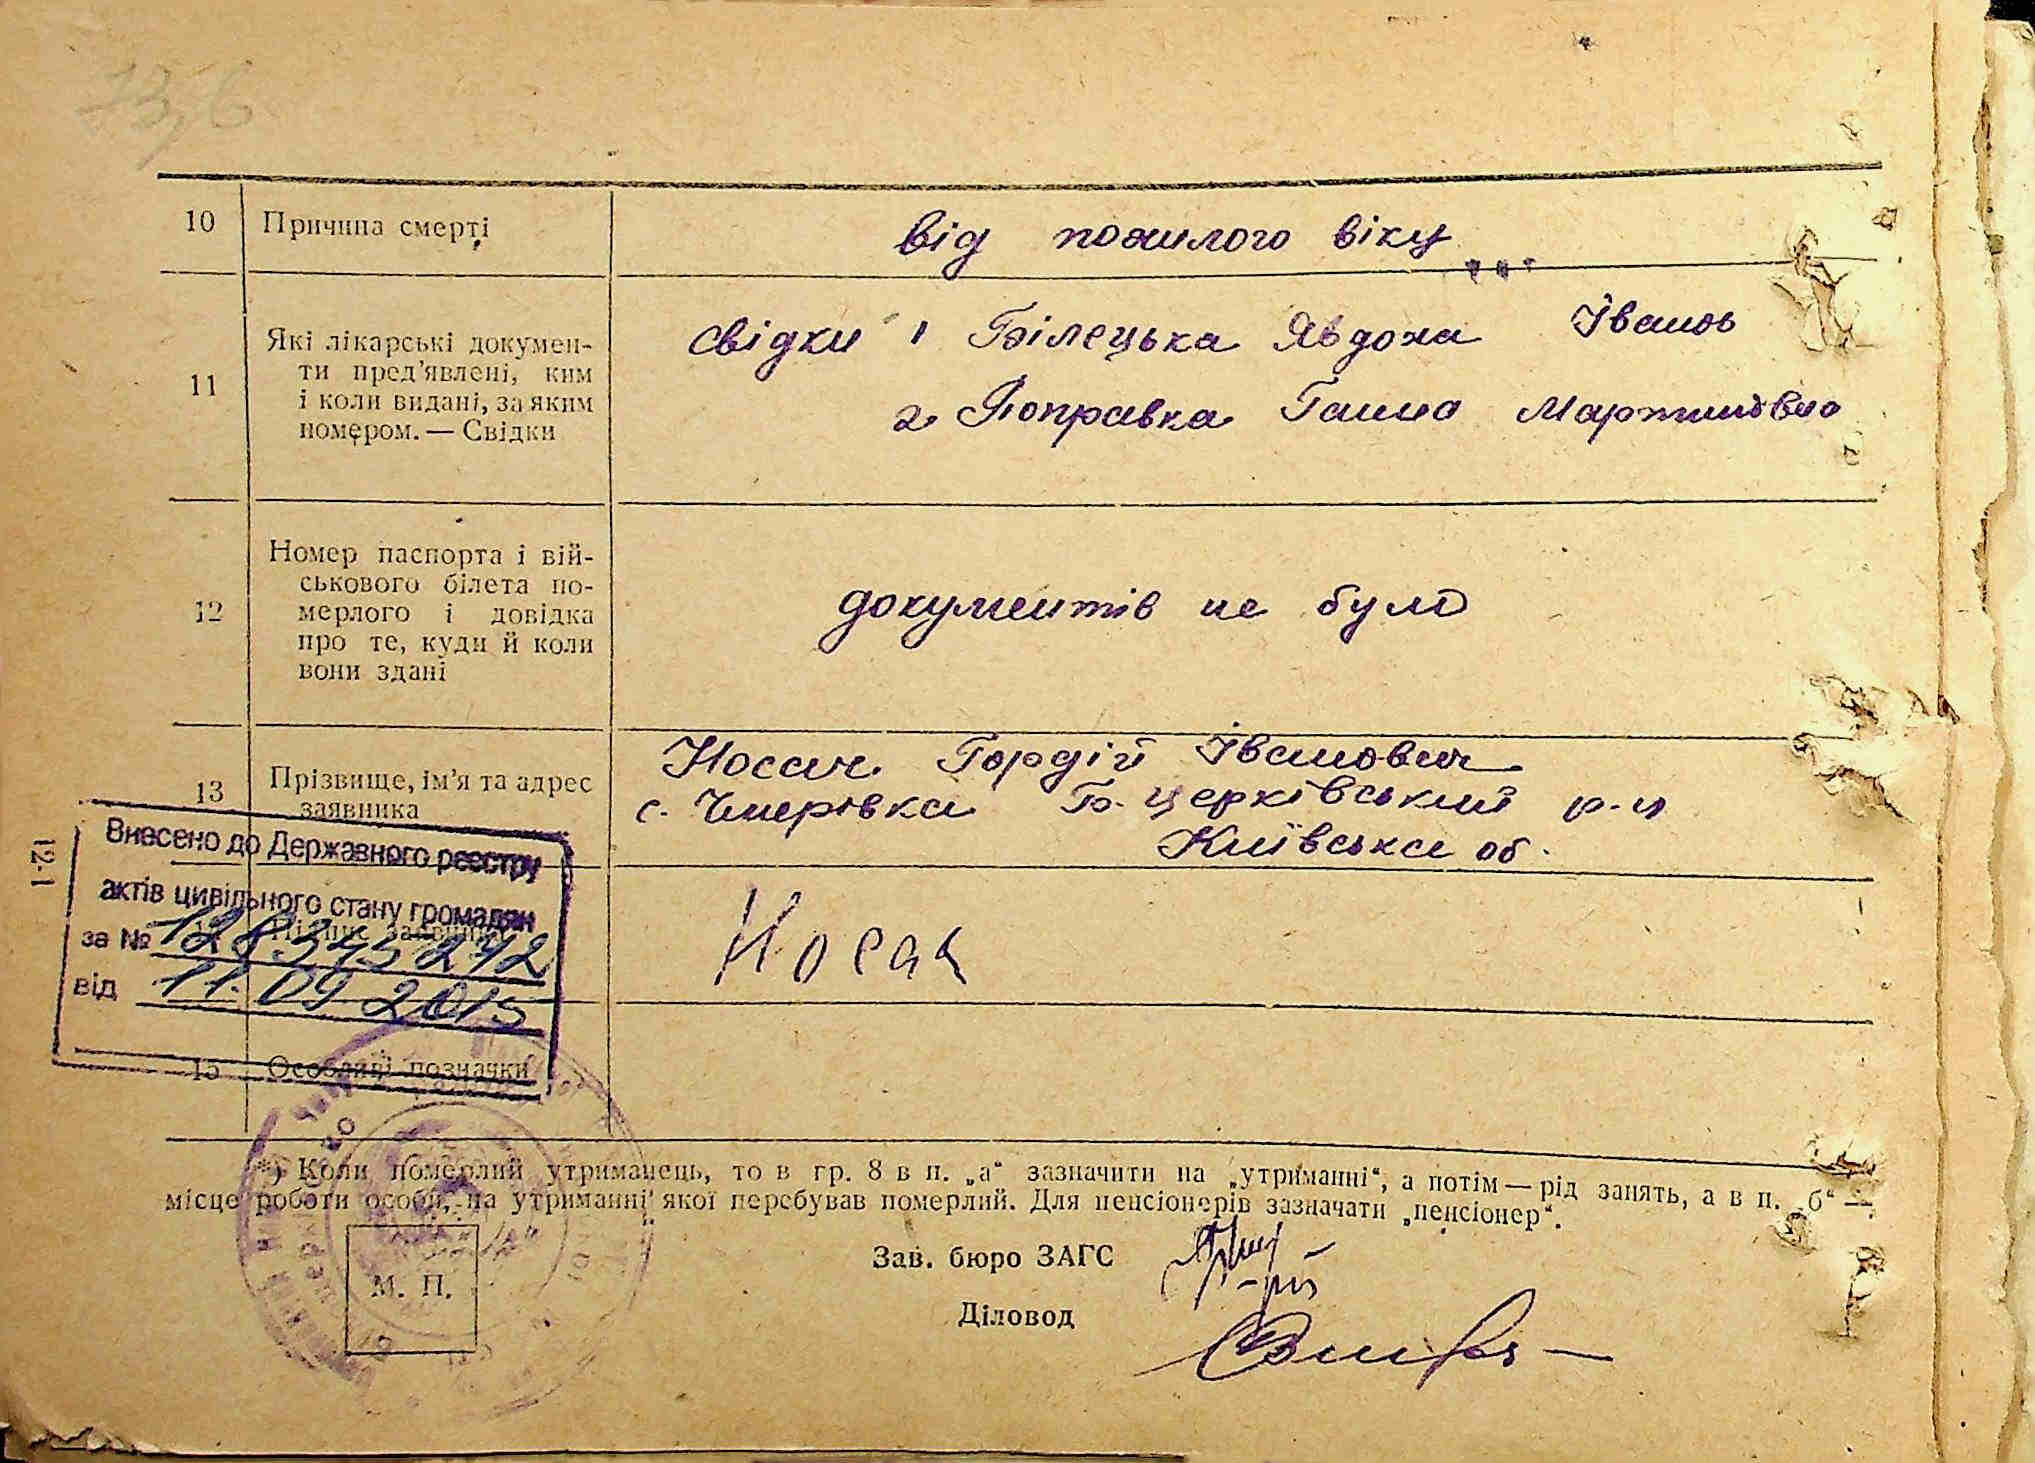 10 Причина смерті від пожилого віку
11 Які лікарські докумен-
ти пред'явлені, ким
і коли видані, за яким
номером. — Свідки
свідки 1 Білецька Явдоха Івано
2 Поправка Ганна Мартинівна
12 Номер паспорта і вій-
ськового білета по-
мерлого і довідка
про те, куди й коли
вони здані
документів не було
13 Прізвище, ім'я та адрес
заявника
Носач Гордій Іванович
с. Чмирівка Б-церківський р-н
Київська об.
Внесено до Державного реєстру
актів цивільного стану громадян
за № 128345272
від 11.09 2015
Підпис заявника
Носач
15 Особливі позначки
*) Коли померлий утриманець, то в гр. 8 в п. „а“ зазначити на „утриманні“, а потім — рід занять, а в п. „б“ —
місце роботи особи, на утриманні якої перебував померлий. Для пенсіонерів зазначати „пенсіонер“.
Зав. бюро ЗАГС
М. П.
Діловод
12-1